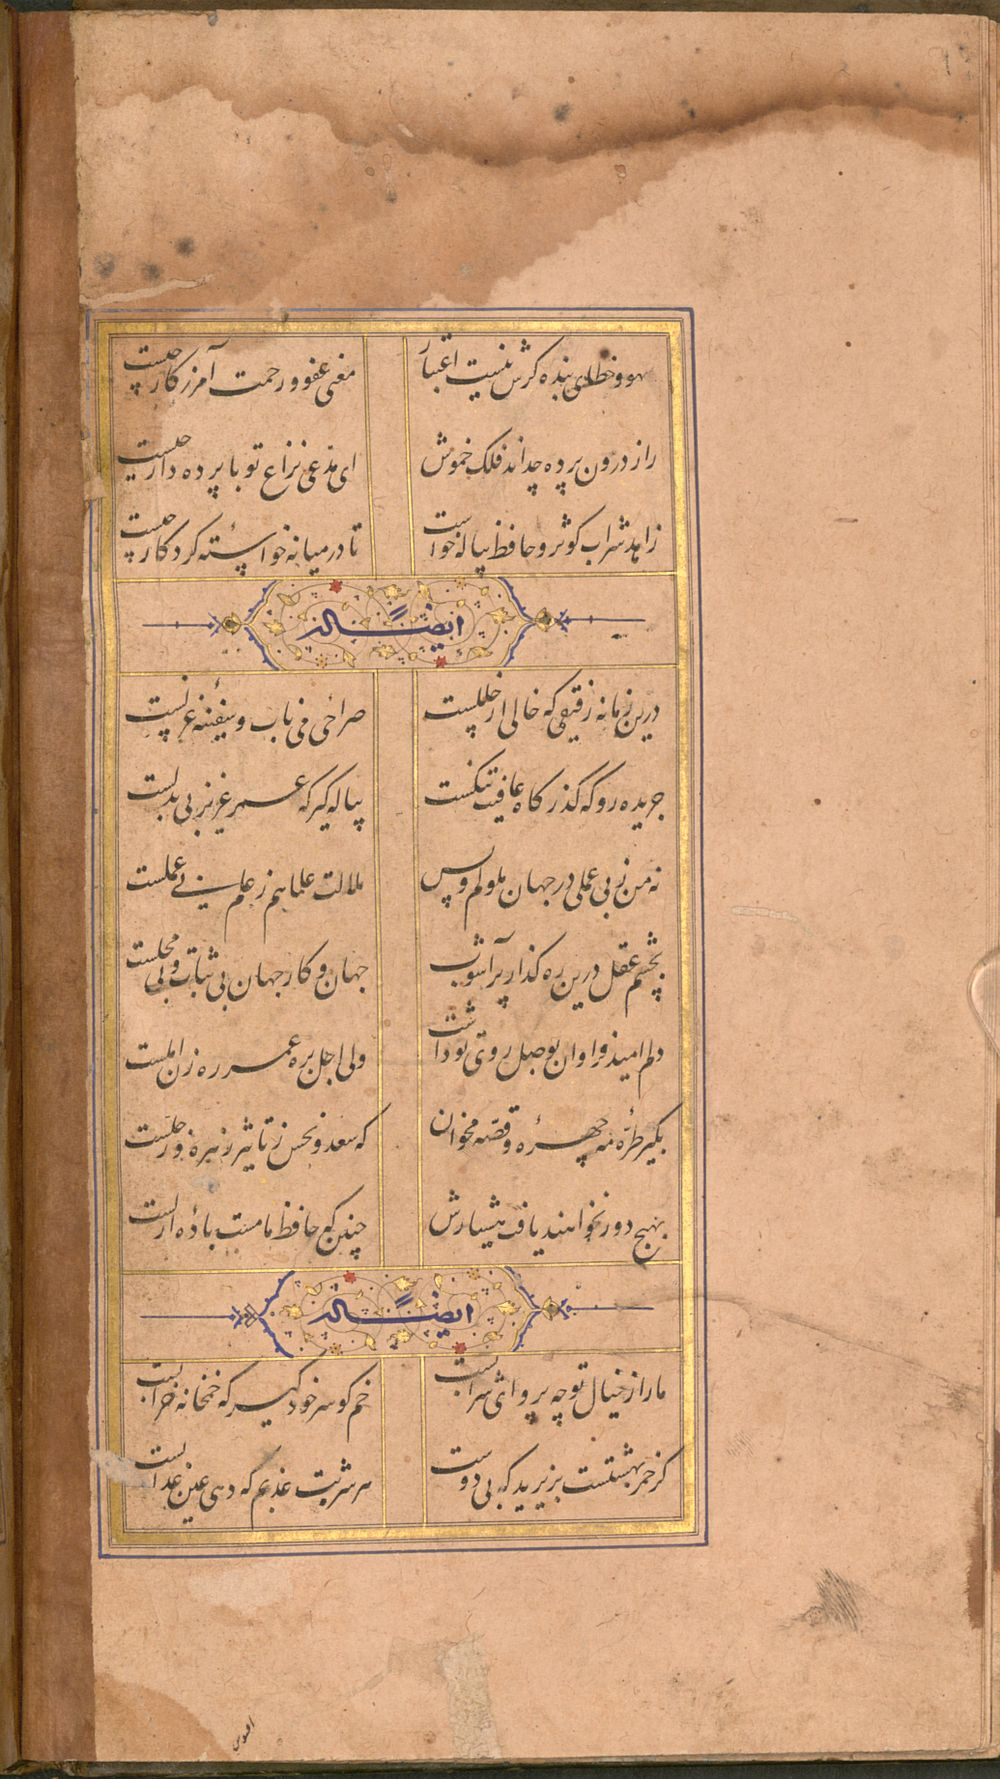 سهو و خطای بنده کرش نیست اعتبار معنی عفو و رحمت آمرزکار چیست
راز درون پرده چه داند فلک خموش ای مدعی نزاع تو با پرده دار چیست
زاهد شراب کوثر و حافظ پیاله خواست تا در میانه خواسته کردکار چیست
ایضا له
درین زمانه رفیقی که خالی از خللست صراحی می ناب و سفینه غزلست
جریده رو که کذرکاه عافیت تنکست پیاله کیر که عمر عزیز بی بدلست
نه من ز بی عملی در جهان ملولم و بس ملالت علما هم ز علم بی عملست
بچشم عقل درین ره کذار پرآشوب جهان و کار جهان بی ثبات و بی محلست
دلم امید فراوان بوصل روی تو داشت ولی اجل بره عمر ره زن املست
بکیر طره مه چهرهٔ و قصه مخوان که سعد و نحس ز تاثیر زهره و زحلست
بهیچ دور نخواهند یافت هشیارش چنین که حافظ ما مست بادهٔ ازلست
ایضا له
ما را ز خیال تو چه پروای شرابست خم کو سر خود کیر که خمخانه خرابست
کر خمر بهشتست بریزید که بی دوست هر شربت عذبم که دهی عین عذابست